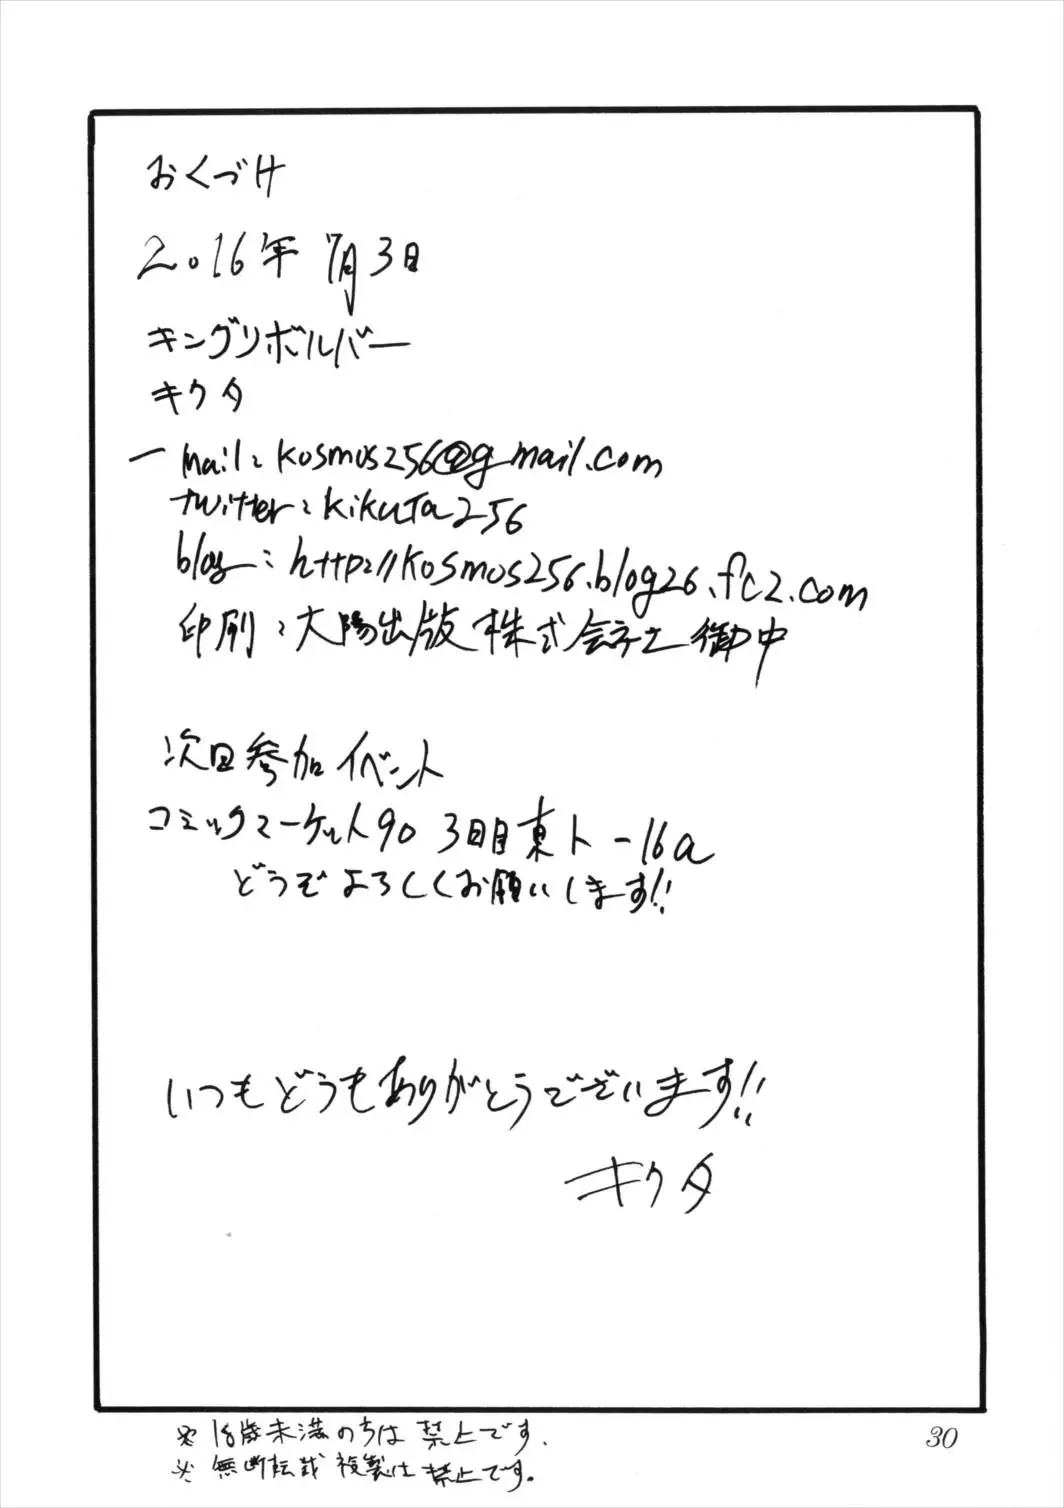 おくづけ
2016年 7月3日
キングリボルバー
キクタ
ー mail: kosmos256@gmail.com
twitter: kikuta256
blog: http://kosmos256.blog26.fc2.com
印刷: 大陽出版株式会社御中
次回参加イベント
コミックマーケット90 3日目東ト-16a
どうぞよろしくお願いします!!
いつもどうもありがとうございます!!
キクタ
※ 18歳未満の は禁止です.
※ 無断転載 複製は禁止です。
30